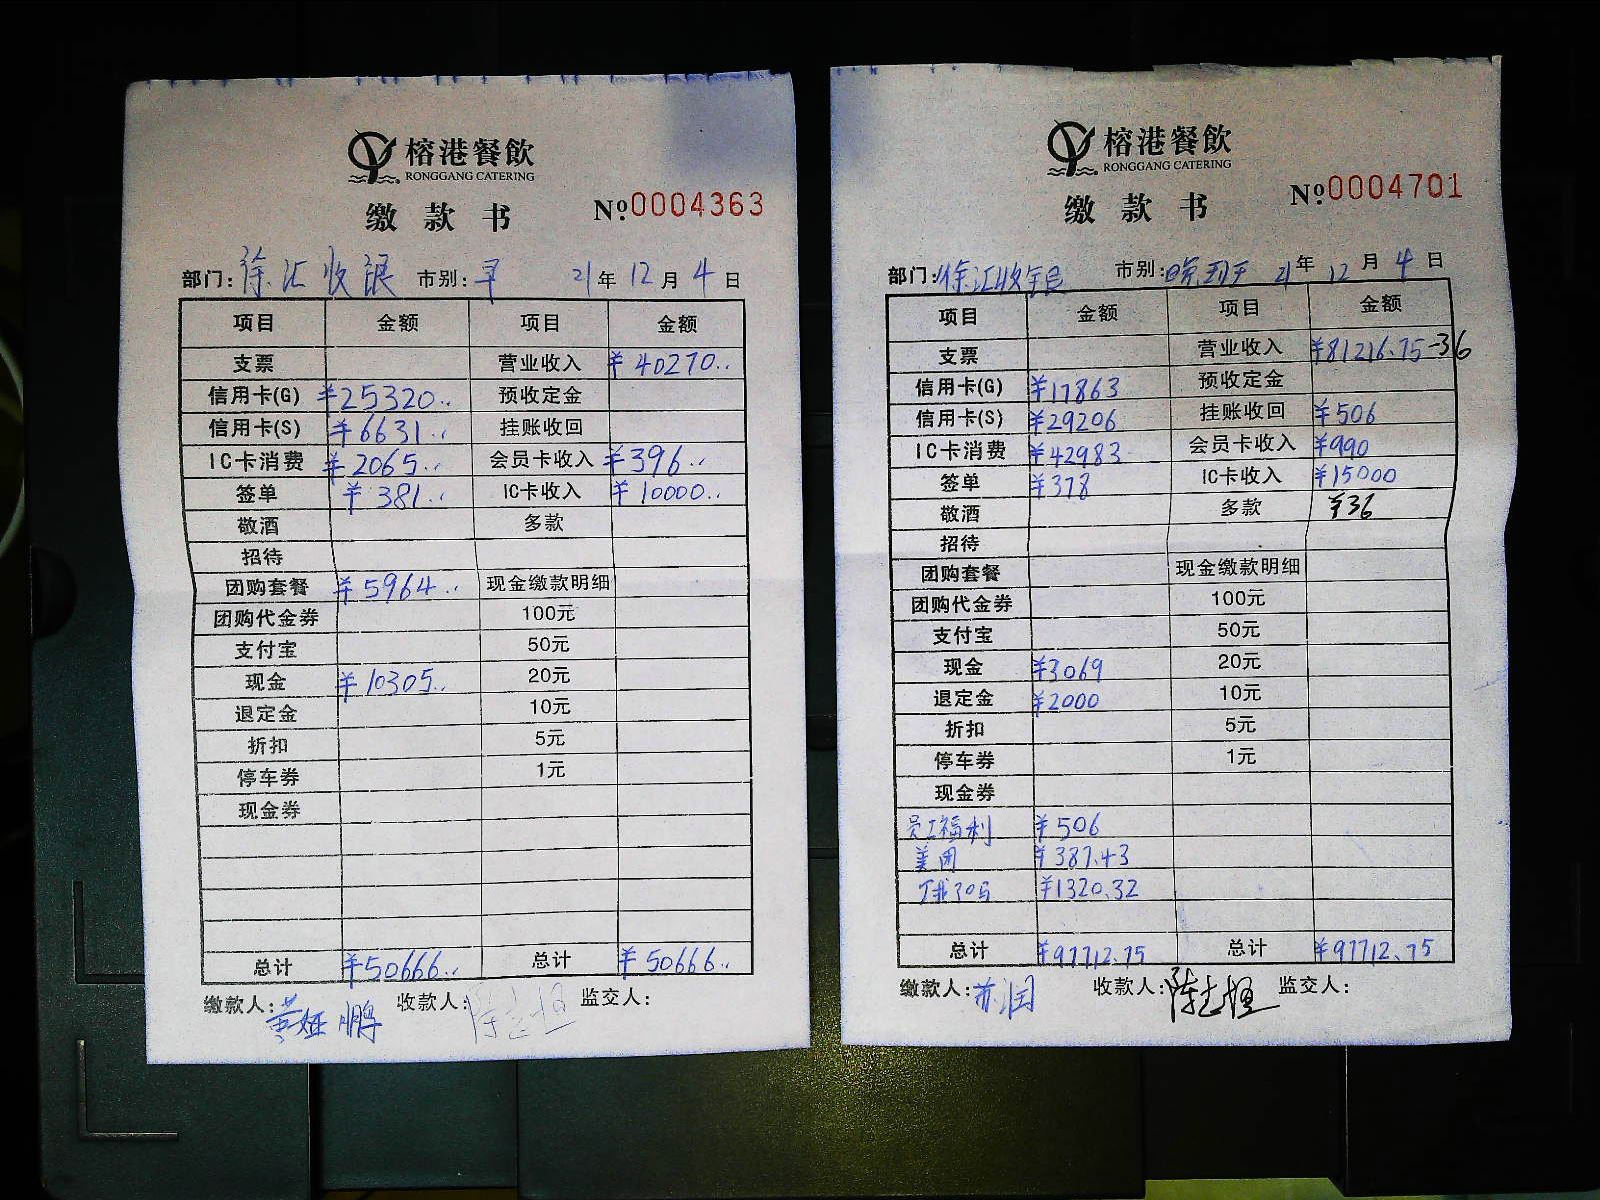 榕港餐飲
RONGGANG CATERING
缴款书
No.0004363
部门:徐汇收银 市别:早 21年12月4日
项目 金额 项目 金额
支票 营业收入 ¥40270..
信用卡(G) ¥25320.. 预收定金
信用卡(S) ¥6631.. 挂账收回
IC卡消费 ¥2065.. 会员卡收入 ¥396..
签单 ¥381.. IC卡收入 ¥10000..
敬酒 多款
招待
团购套餐 ¥5964.. 现金缴款明细
团购代金券 100元
支付宝 50元
现金 ¥10305.. 20元
退定金 10元
折扣 5元
停车券 1元
现金券
总计 ¥50666.. 总计 ¥50666..
缴款人: 收款人: 监交人:
榕港餐飲
RONGGANG CATERING
缴款书
No.0004701
部门:徐汇收银 市别:晚 21年12月4日
项目 金额 项目 金额
支票 营业收入 ¥81216.75-36
信用卡(G) ¥17863 预收定金
信用卡(S) ¥29206 挂账收回 ¥506
IC卡消费 ¥42983 会员卡收入 ¥990
签单 ¥378 IC卡收入 ¥15000
敬酒 多款 ¥36
招待
团购套餐 现金缴款明细
团购代金券 100元
支付宝 50元
现金 ¥3069 20元
退定金 ¥2000 10元
折扣 5元
停车券 1元
现金券
员工福利 ¥506
美团 ¥387.43
¥1320.32
总计 ¥97712.75 总计 ¥97712.75
缴款人:苏润 收款人: 监交人: